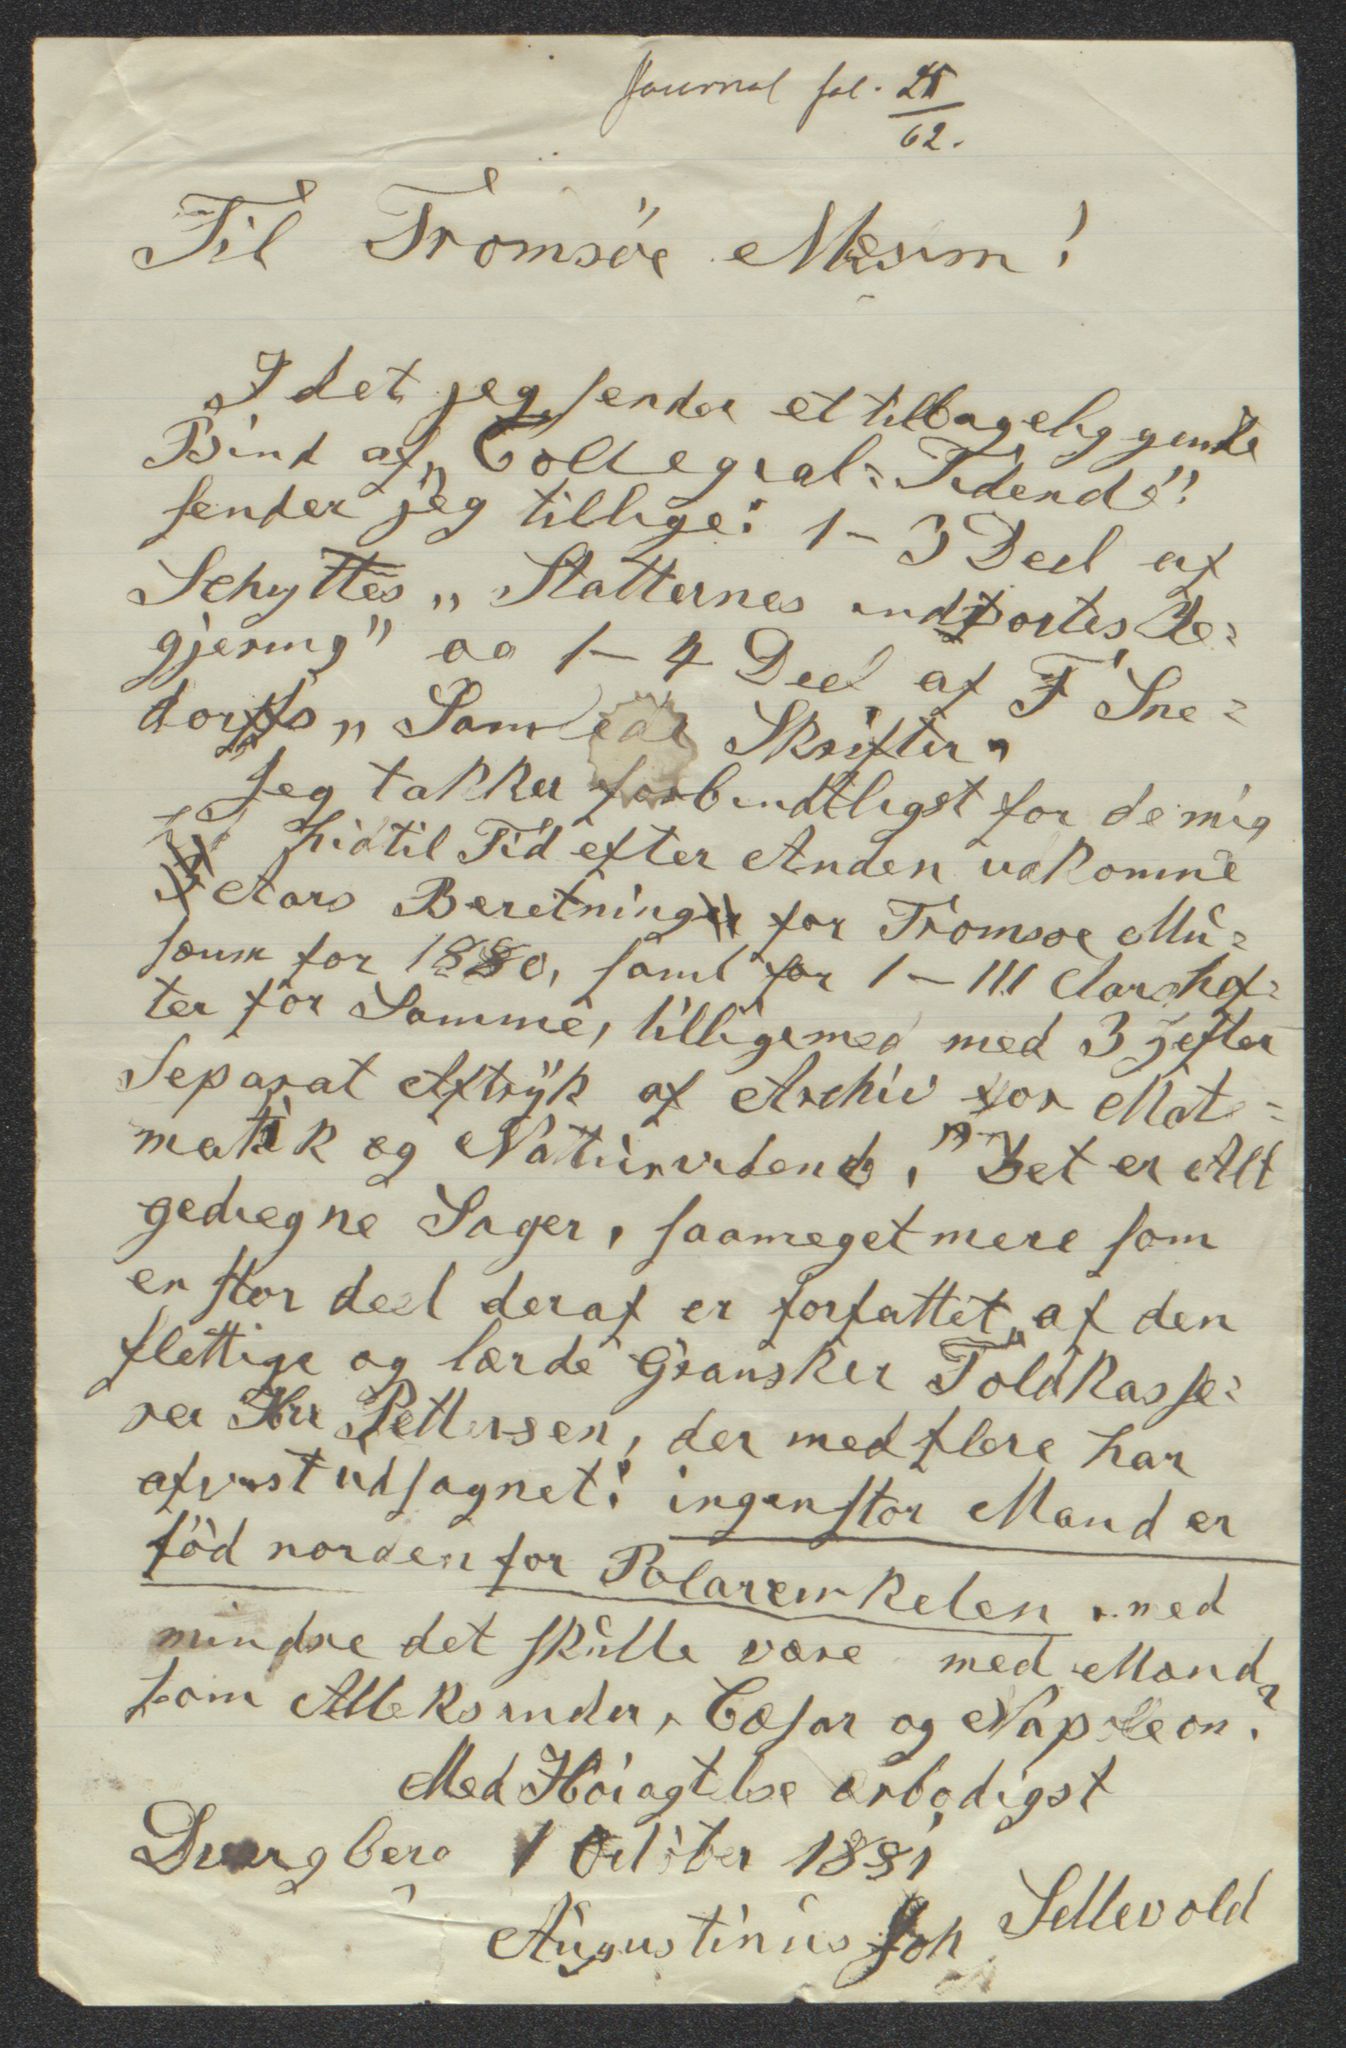 Journal fol. 25
62.
Til Tromsöe Mesum!
I det jeg sender et tilbageliggende
Bind af „Collegial=Tidende"!
sender jeg tillige: 1 - 3 Deel af
Schyttes „Statternes indvortes Re=
gjering" og 1 - 4 Deel af F Sne=
dorffs „Samlede Skrifter„
Jeg takker forbindtligst for de mig
hidtil Tid efter Anden udkomne
Aars Beretninger for Tromsøe Mu=
seum for 1880, samt for 1 - III Aarshef=
ter for Samme, tilligemed med 3 Hefter
Separat Aftryk af Archiv for Mate=
matik og Naturvidensk. Det er Alt
gediegne Sager, saameget mere som
en stor deel deraf er forfattet af den
flettige og lærde Gransker Toldkasse=
rer Hrr Pettersen, der med flere har
afvist udsagnet: ingen stor Mand er
föd norden for Polarcirkelen, med
mindre det skulle være med Mænd
som Alleksander, Cæsar og Napoleon.
Med Höiagtelse ærbødigst
Dvergberg 1 October 1881
Augustinus Joh Sellevold